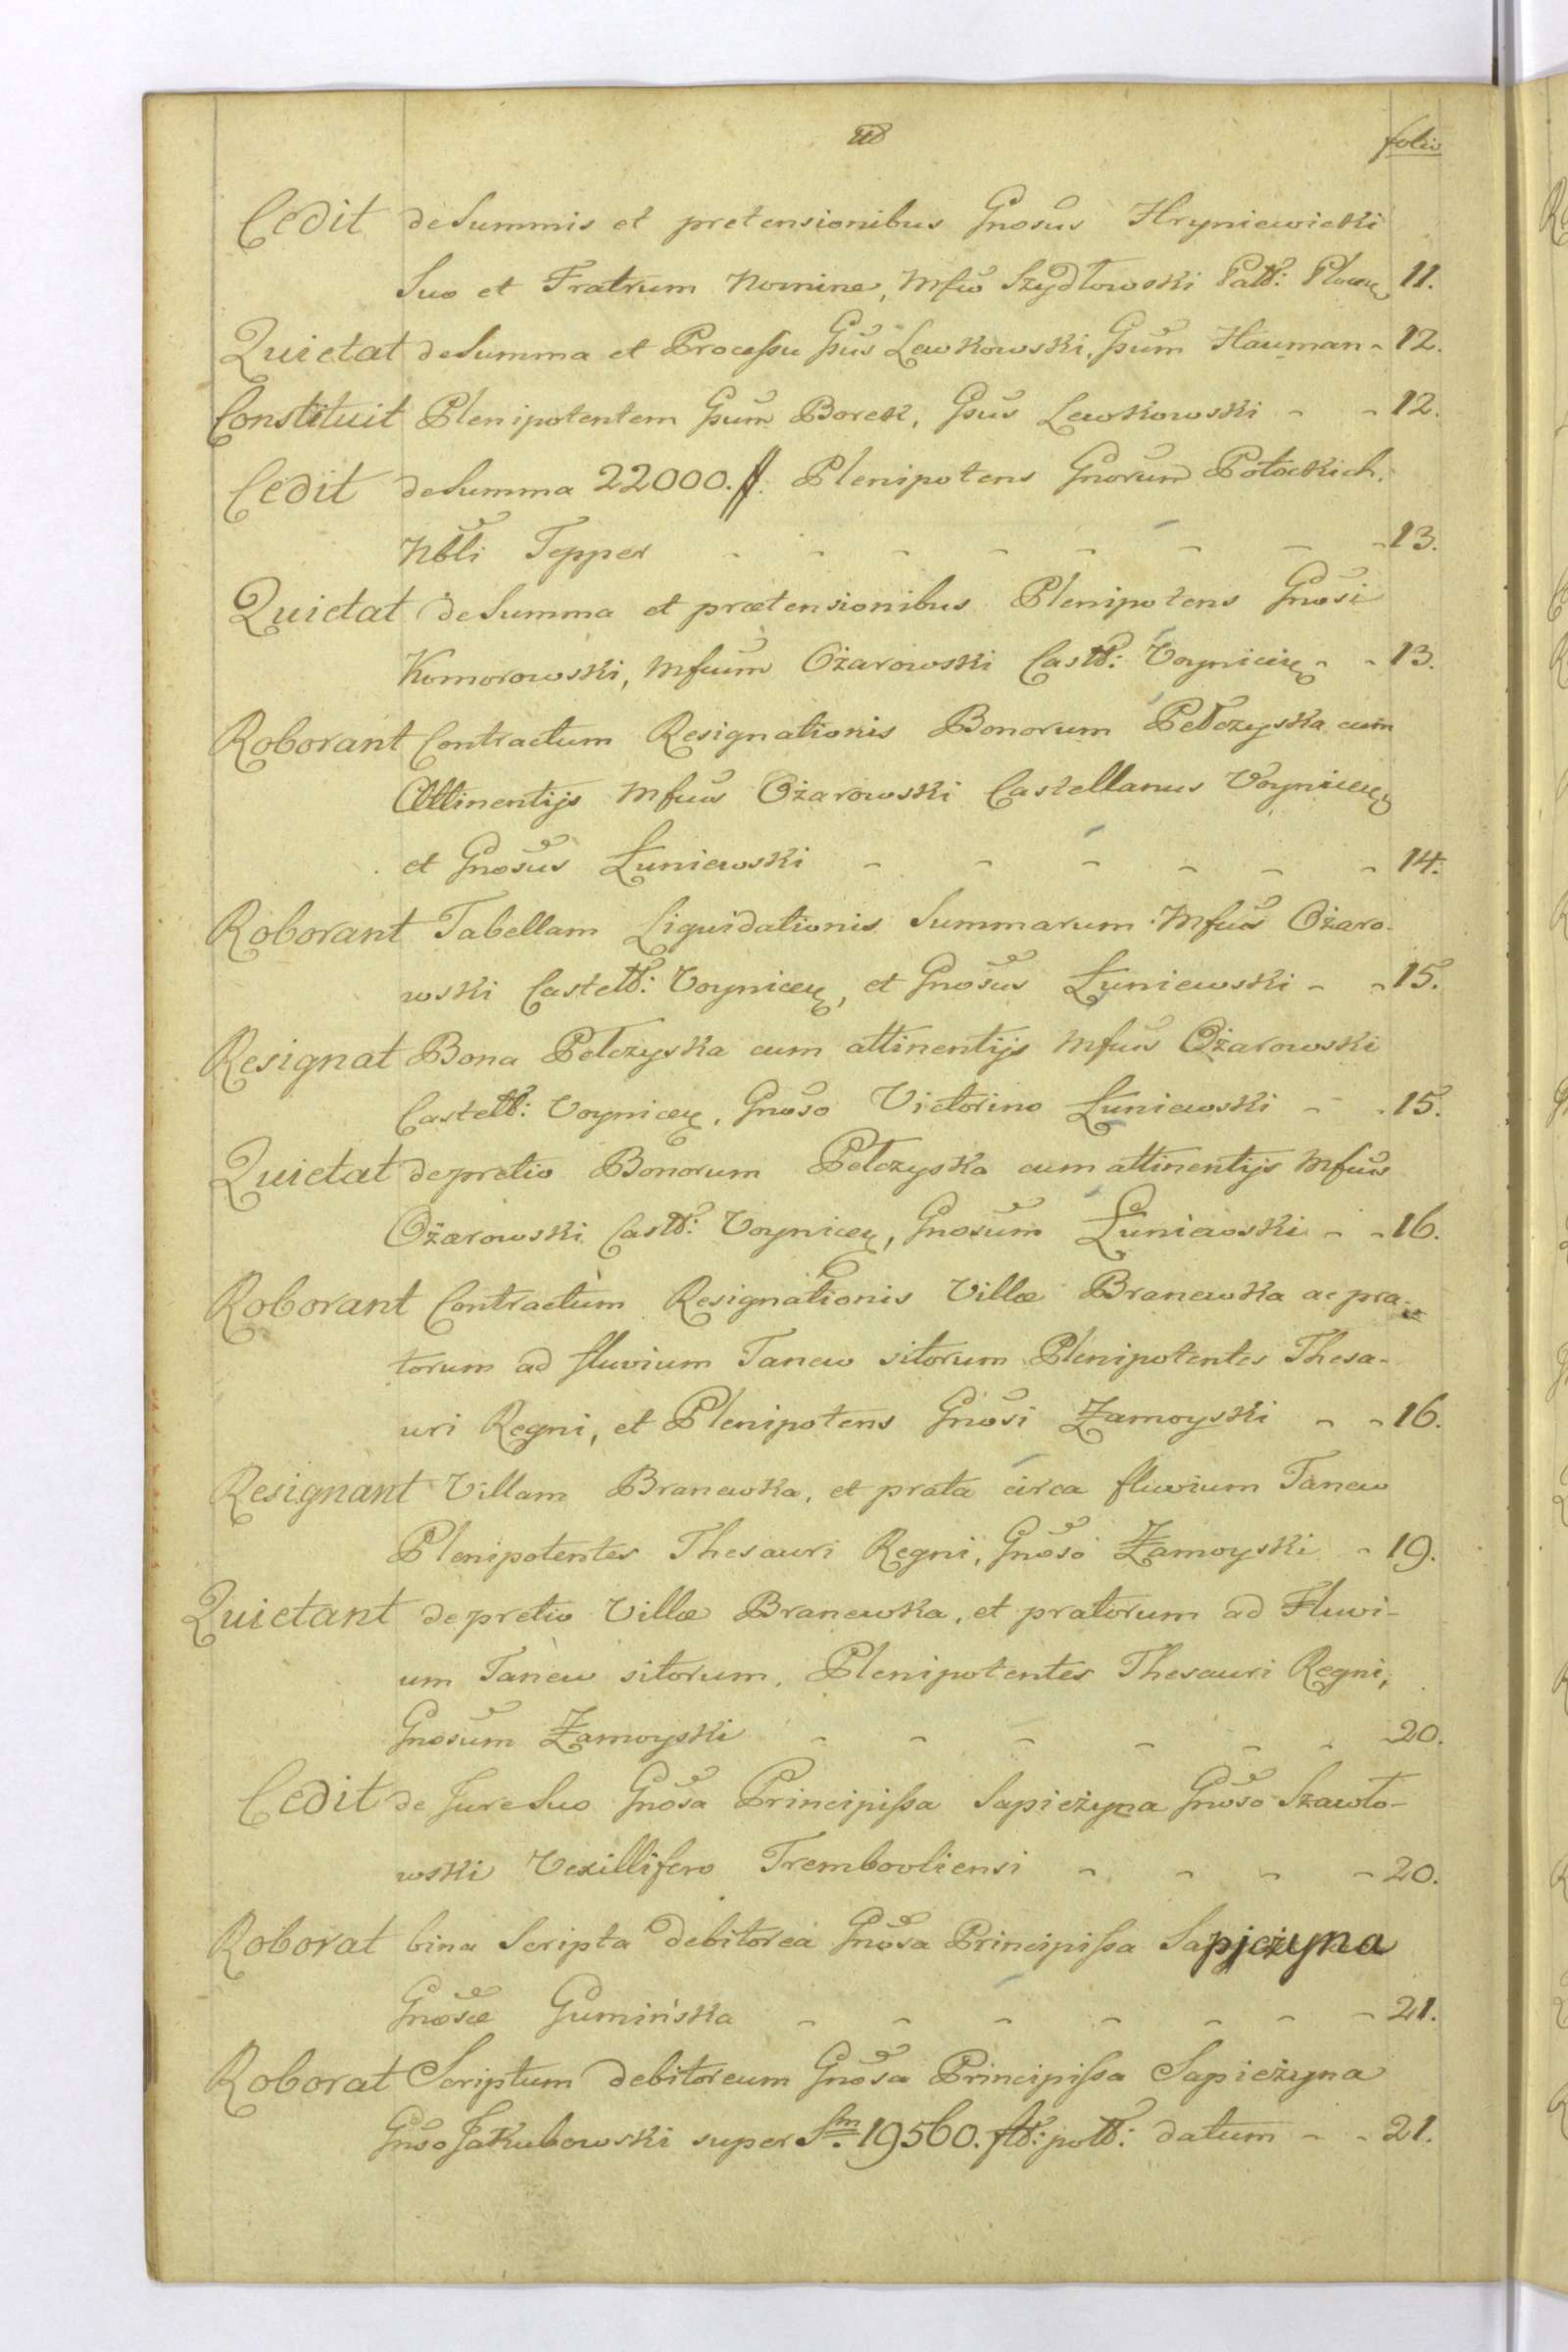 folio
Cedit de Summis et pretensionibus Gnosus Hryniewicki
Suo et Fratrum Nomine, Mfco Szydłowski Pattt: Plocen 11.
Quietat de Summa et Processu Gsus Lewkowski, Gsum Hauman - 12.
Constituit Plenipotentem Gsum Borek, Gsus Lewkowski - - 12.
Cedit de Summa 22000. ff. Plenipotens Gnorum Potockich,
Nbli Tepper - - - - - - - - 13.
Quietat de Summa et prætensionibus Plenipotens Gnosi
Komorowski, Mfcum Ożarowski Casttt: Voynicien - - 13.
Roborant Contractum Resignationis Bonorum Pełczyska cum
Attinentijs Mfcus Ożarowski Castellanus Voynicen
et Gnosus Łuniewski - - - - - - 14.
Roborant Tabellam Liquidationis Summarum Mfcus Ożaro-
wski Castelttt: Voynicen, et Gnosus Łuniewski - - 15.
Resignat Bona Pełczyska cum attinentijs Mfcus Ożarowski
Castelttt: Voynicen, Gnoso Victorino Łuniewski - - 15.
Quietat de pretio Bonorum Pełczyska cum attinentijs Mfcus
Ożarowski Casttt: Voynicen, Gnosum Łuniewski - - 16.
Roborant Contractum Resignationis Villæ Branewka ac pra-
torum ad fluvium Tanew sitorum Plenipotentes Thesa-
uri Regni, et Plenipotens Gnosi Zamoyski - - 16.
Resignant Villam Branewka, et prata circa fluvium Tanew
Plenipotentes Thesauri Regni, Gnoso Zamoyski - 19.
Quietant de pretio Villæ Branewka, et pratorum ad Fluvi-
um Tanew sitorum, Plenipotentes Thesauri Regni,
Gnosum Zamoyski - - - - - - 20.
Cedit de Jure Suo Gnosa Principissa Sapieżyna Gnoso Szawło-
wski Vexillifero Trembovliensi - - - - 20.
Roborat bina Scripta debitorea Gnosa Principissa Sapjeżyna
Gnosæ Gumińska - - - - - - - 21.
Roborat Scriptum debitoreum Gnosa Principissa Sapieżyna
Gnso Jakubowski super Sm. 19560. flttt: polttt: datum - - 21.